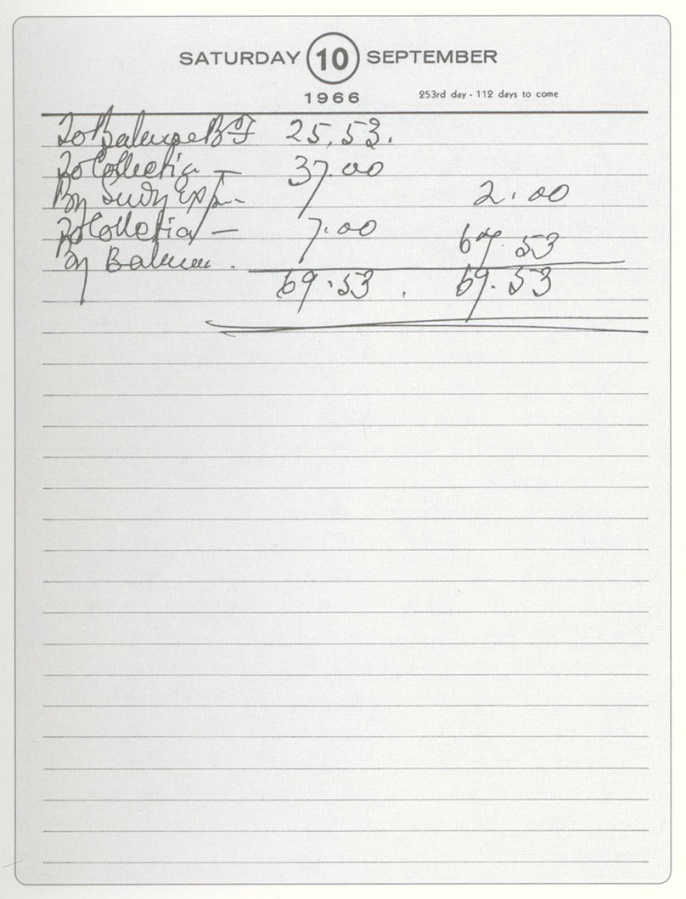 SATURDAY 10 SEPTEMBER
1966 253rd day - 112 days to come
To Balance B/F 25.53.
To Collection — 37.00
By Sundry Exp. 2.00
To Collection — 7.00
By Balance. 67.53
69.53 . 69.53